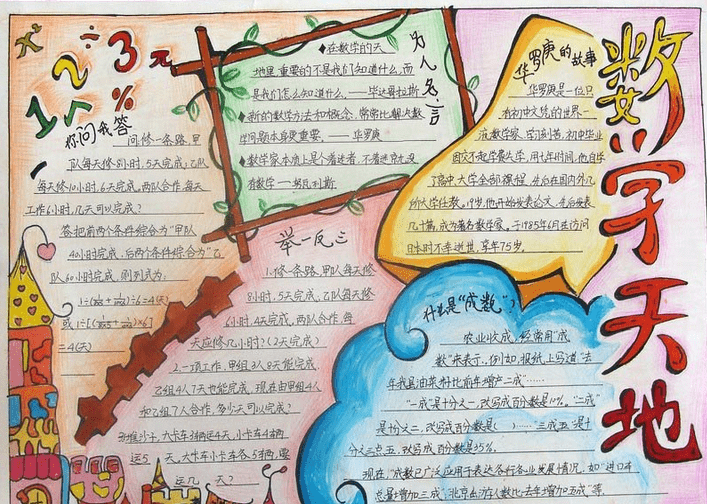 数学天地
x²
÷
1 2 3 π
%
你问我答
问修一条路，甲
队每天修8小时，5天完成；乙队
每天修10小时，6天完成，两队合作，每天
工作6小时，几天可以完成？
答把前两个条件综合为"甲队
40小时完成，后两个条件综合"乙
队60小时完成，则列式为：
=4(天)
为人名言
◆在数学的天
地里，重要的不是我们知道什么，而
是我们怎么知道什么。——毕达哥拉斯
◆新的数学方法和概念，常常比解决数
学问题本身更重要。——华罗庚
◆数学家本质上是个着迷者，不着迷就没
有数学——努瓦利斯
华罗庚的故事
华罗庚是一位只
有初中文凭的世界一
流数学家，学习刻苦，初中毕业
因交不起学费失学，用七年时间，他自学
了高中、大学全部课程，先后在国内外几
所大学任教，19岁，他开始发表论文，先后发表
几十篇，成为著名数学家，于1985年6月在访问
日本时不幸逝世，享年75岁。
举一反三
1.修一条路，甲队每天修
8小时，5天完成，乙队每天修
6小时，4天完成，两队合作，每
天应修几小时？(2天完成)
2.一项工作，甲组3人8天能完成
乙组4人7天也能完成，现在由甲组4人
和乙组7人合作，多少天可以完成？
大卡车3辆运4天，小卡车4辆
运5天，大卡车小卡车各5辆，要
运几天？
什么是"成数"？
农业收成，经常用"成
数"来表示，例如，报纸上写道："去
年我县油菜籽比前年增产二成"……
"一成"是十分之一，改写成百分数是10%。"二成"
是十分之二，改写成百分数是(  )……"三成五"是十
分之三点五，改写成百分数是35%。
现在，"成数"已广泛应用于表达各行各业发展情况，如"进口车
总量增加三成"，北京出游人数比去年增加两成"等